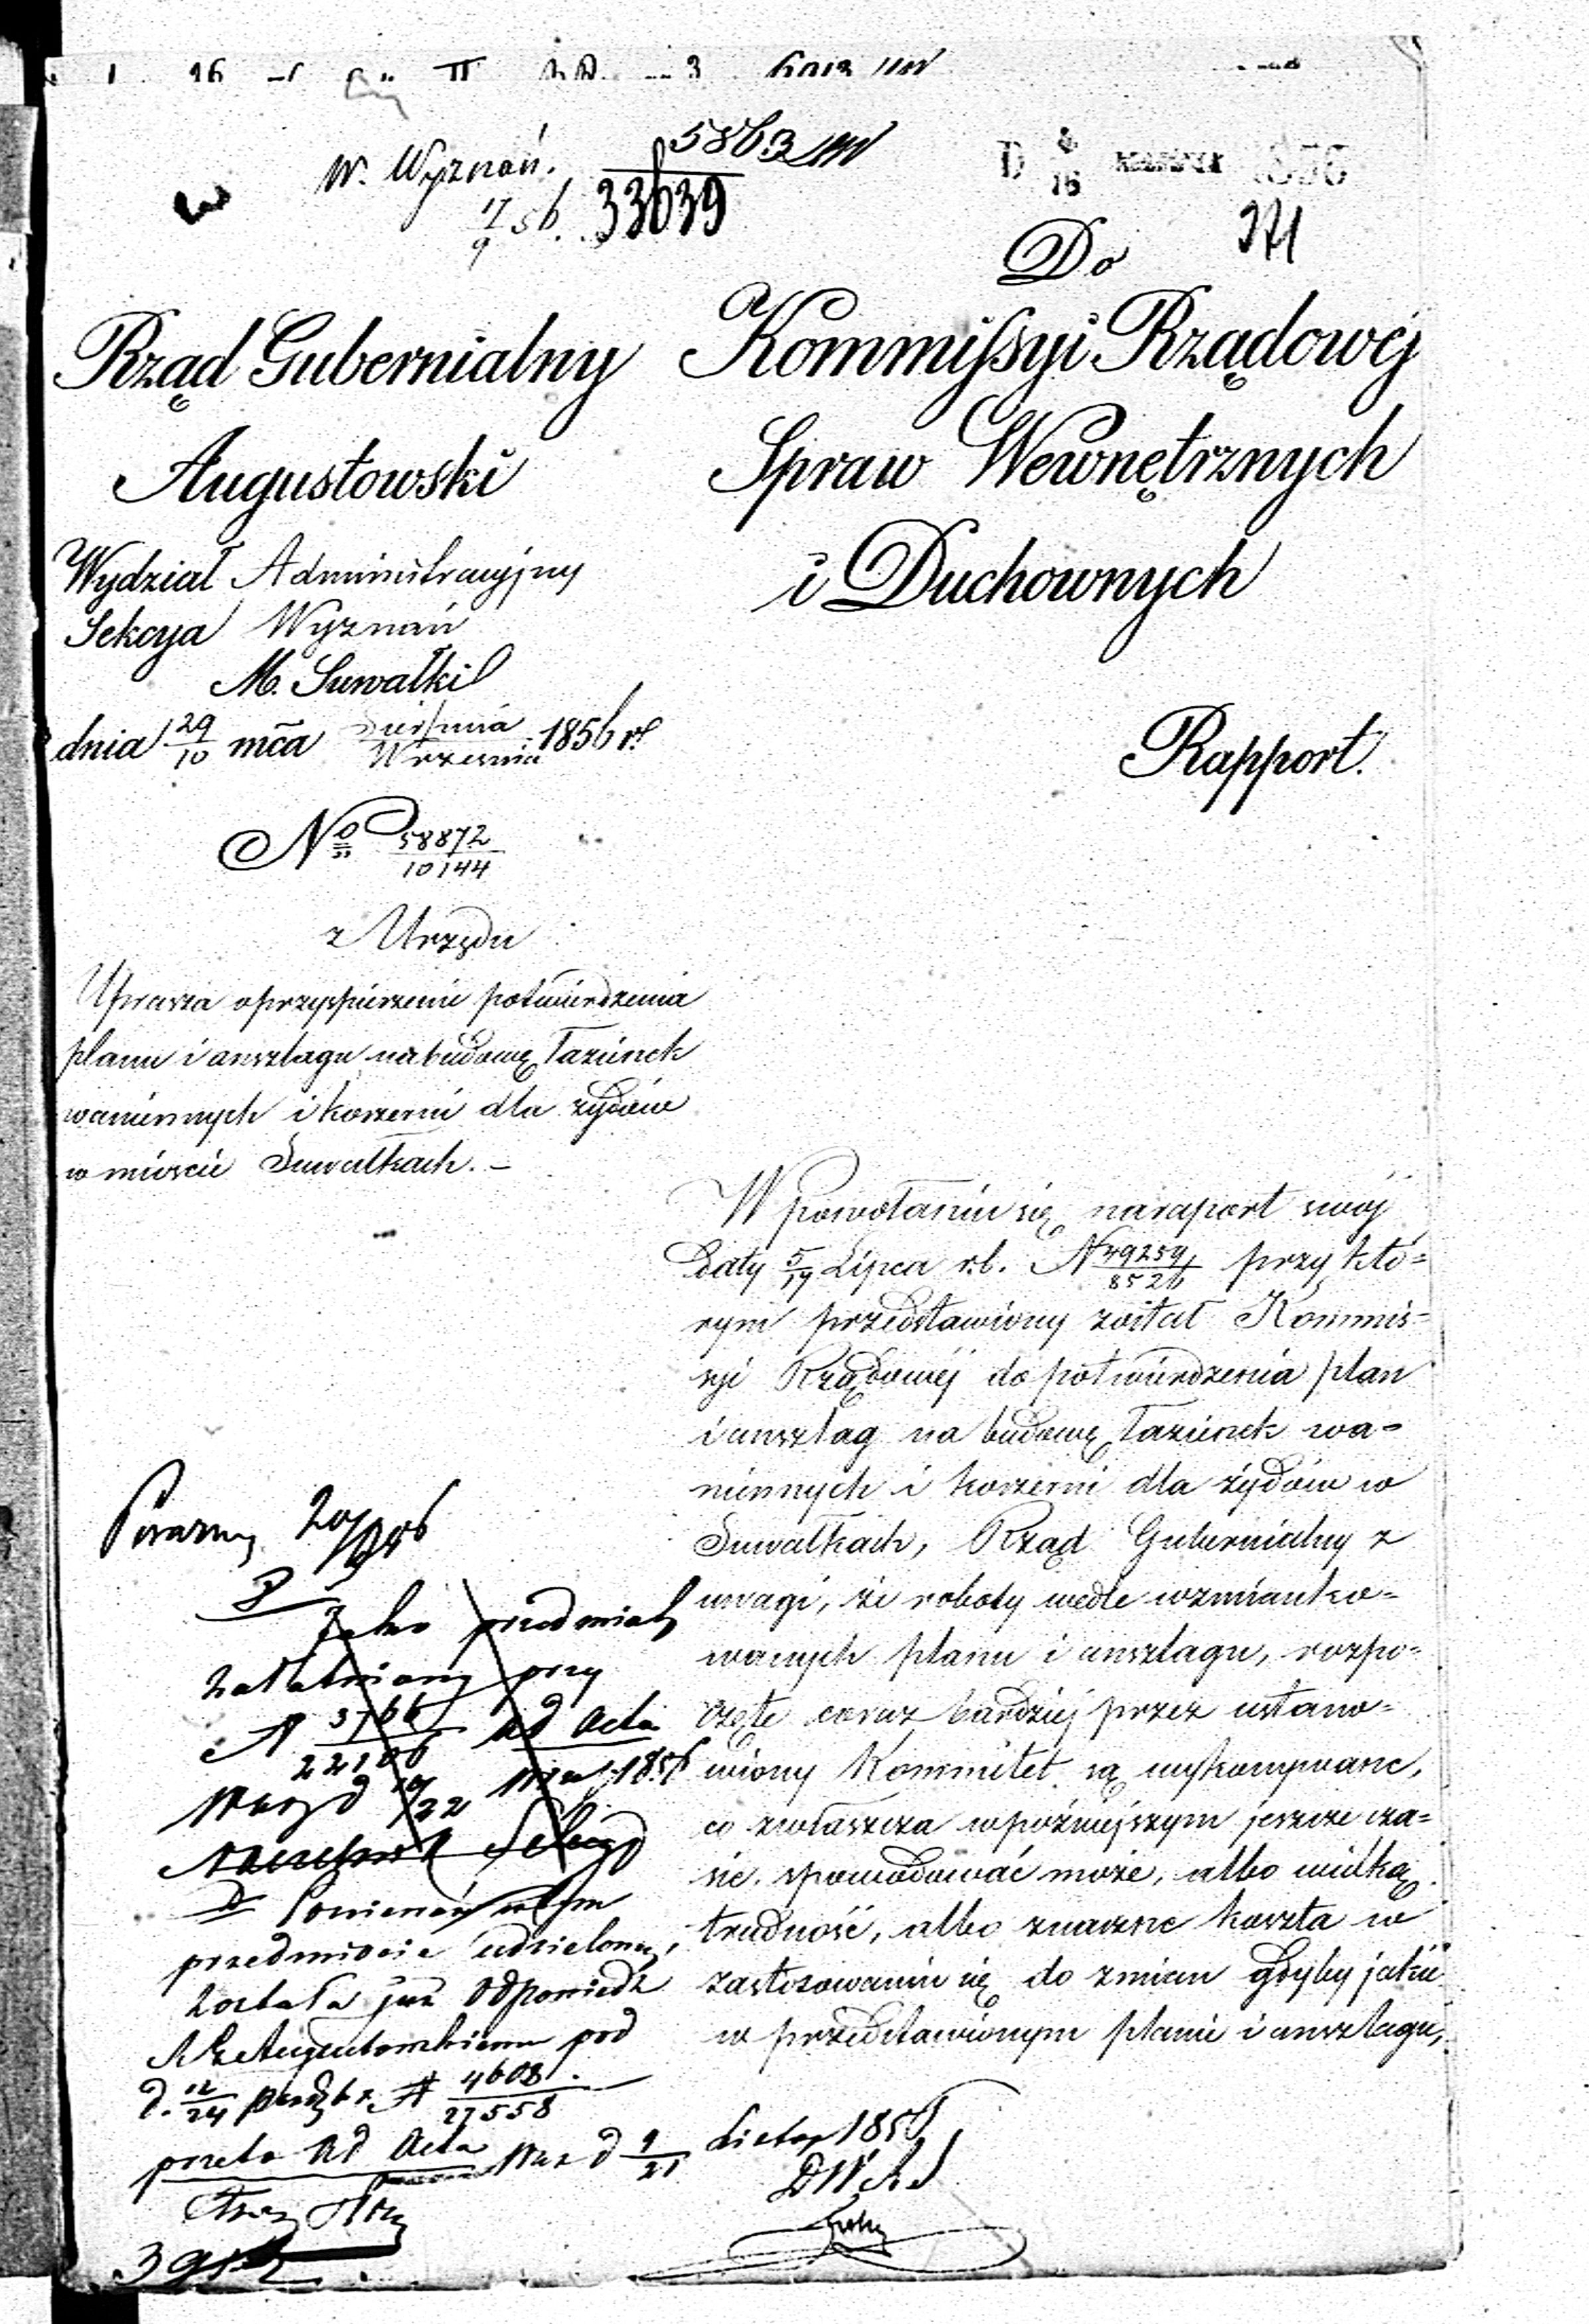 W. Wyznań. 5863
17/9 56. 33639
1856
371
Do
Rząd Gubernialny
Augustowski
Wydział Administracyjny
Sekcya Wyznań
M. Suwałki
dnia 29/10 mca Sierpnia/Września 1856 r.
No 58872/10144
z Urzędu
Uprasza o przyspieszenie potwierdzenia
planu i anszlagu na budowę Łazienek
waniennych i koszerni dla żydów
w mieście Suwałkach. –
Kommissyi Rządowéj
Spraw Wewnętrznych
i Duchownych
Rapport.
W powołaniu się na raport swój
daty 5/17 Lipca r.b. N 49259/8526 przy któ=
rym przedstawiony został Kommis=
syi Rządowéj do potwierdzenia plan
i anszlag na budowę Łazienek wa=
niennych i koszerni dla żydów w
Suwałkach, Rząd Gubernialny z
uwagi, że roboty wedle wzmianko=
wanych planu i anszlagu, rozpo=
częte coraz bardziej przez ustano=
wiony Kommitet są wykonywane,
co zwłaszcza w późniejszym jeszcze cza=
sie spowodować może, albo wielką
trudność, albo znaczne koszta w
zastosowaniu się do zmian gdyby jakie
w przedstawionym planie i anszlagu,
Jako przedmiot
załatwiony przy
N 3766/22106 ad Acta
d 10/22 1856
D Ponieważ w tym
przedmiocie udzieloną
została już odpowiedź
R G Augustowskiemu pod
d. 12/24 N 4608/27558
przeto ad Acta d 9/21 Listop 1856